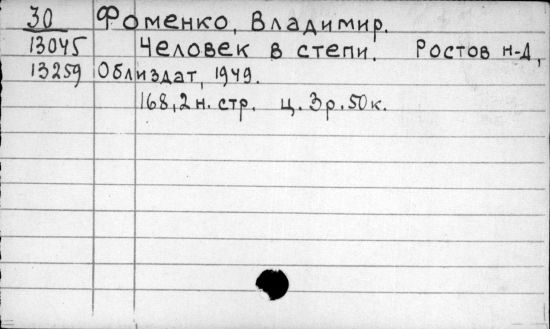 30 Фоменко, Владимир.
13045 Человек в степи. Ростов н-Д,
13259 Облиздат, 1949.
168,2 н. стр. ц. 3 р. 50 к.